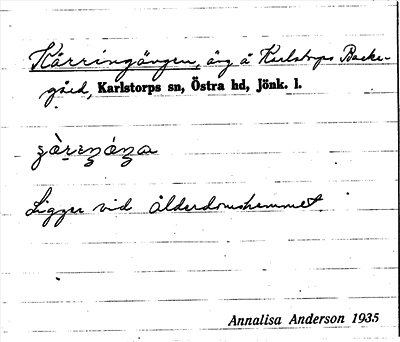 Kärringängen, äng å Karlstorps Backe-
gård, Karlstorps sn, Östra hd, Jönk. l.
Ligger vid ålderdomshemmet.
Annalisa Anderson 1935